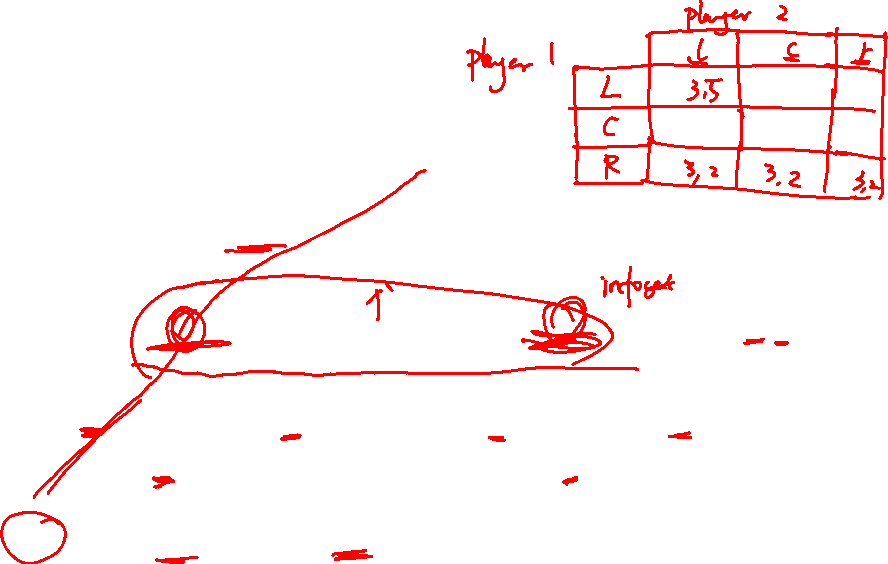 player 2
player 1
l c r
L 3,5
C
R 3,2 3,2 3,2
infoset